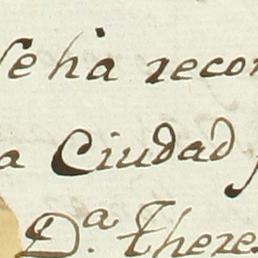 Se ha recon
a Ciudad
D.ª There